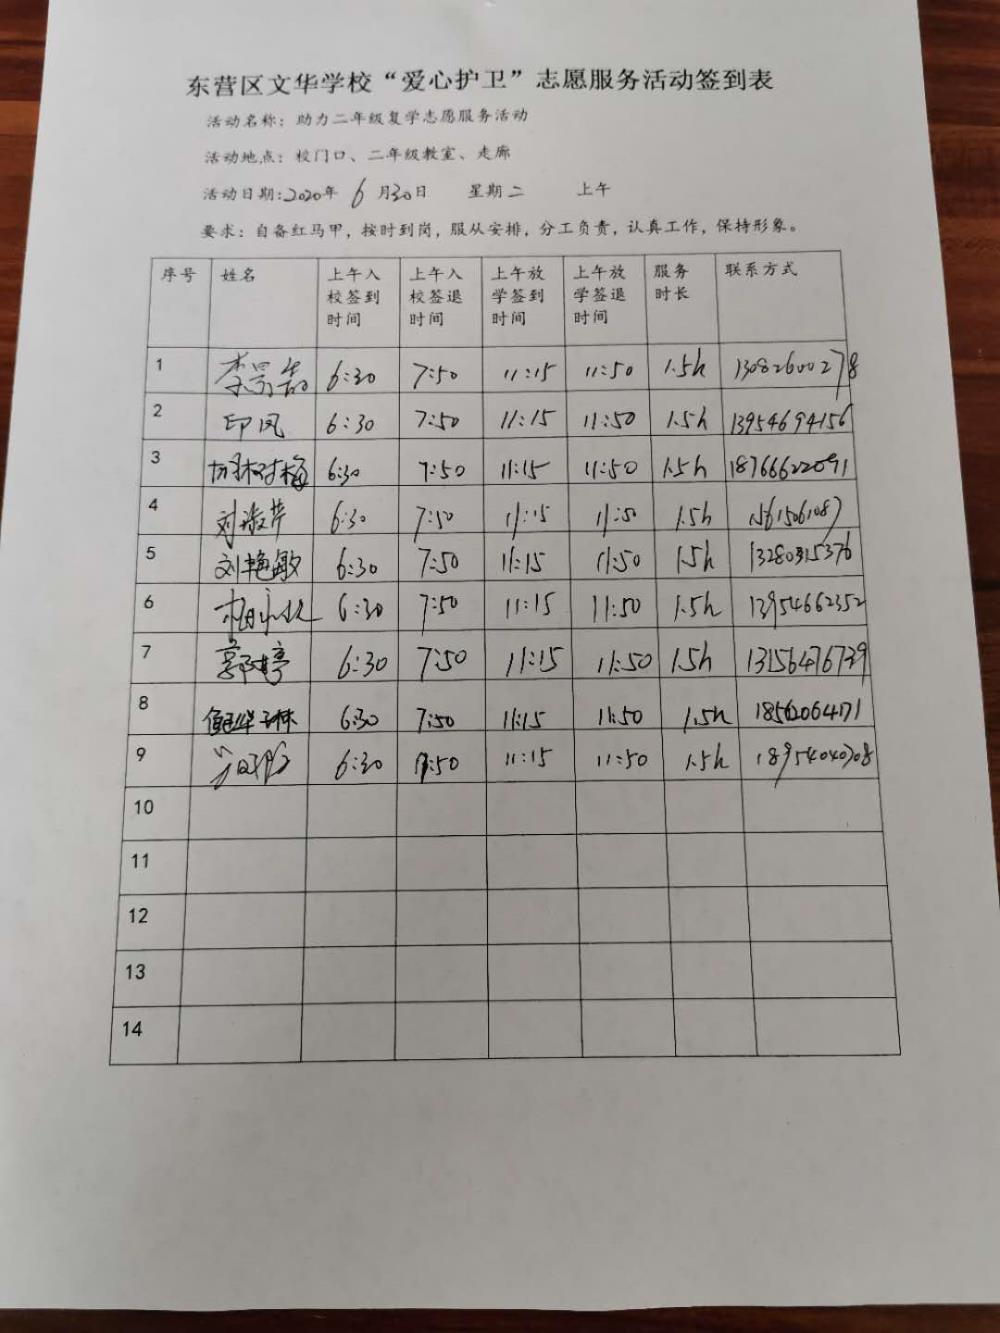 东营区文华学校“爱心护卫”志愿服务活动签到表
活动名称：助力二年级复学志愿服务活动
活动地点：校门口、二年级教室、走廊
活动日期:2020年 6月30日 星期二 上午
要求：自备红马甲，按时到岗，服从安排，分工负责，认真工作，保持形象。
序号 姓名 上午入校签到时间 上午入校签退时间 上午放学签到时间 上午放学签退时间 服务时长 联系方式
1 6:30 7:50 11:15 11:50 1.5h 13082600278
2 印凤 6:30 7:50 11:15 11:50 1.5h 13954694156
3 6:30 7:50 11:15 11:50 1.5h 18766622091
4 刘淑芹 6:30 7:50 11:15 11:50 1.5h
5 刘艳敏 6:30 7:50 11:15 11:50 1.5h 13280315376
6 6:30 7:50 11:15 11:50 1.5h 13954662352
7 郭婷 6:30 7:50 11:15 11:50 1.5h 13156476739
8 6:30 7:50 11:15 11:50 1.5h
9 6:30 7:50 11:15 11:50 1.5h 18954040708
10
11
12
13
14